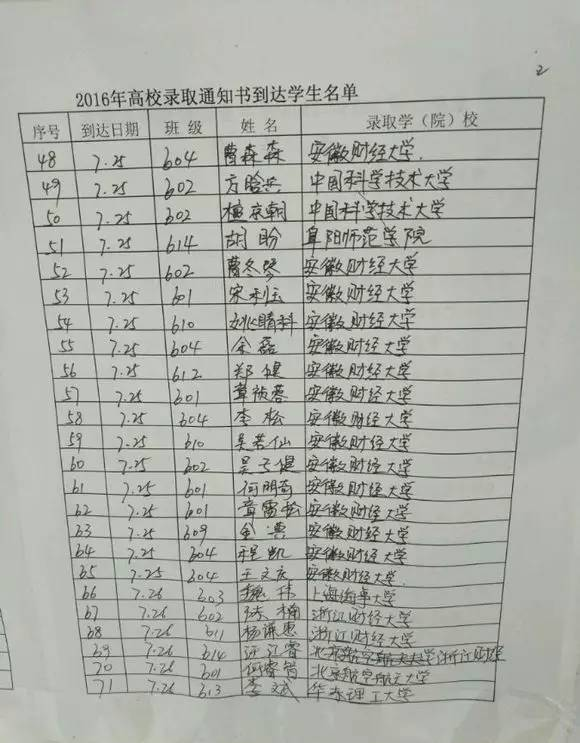 2
2016年高校录取通知书到达学生名单
序号 到达日期 班级 姓名 录取学（院）校
48 7.25 604 曹森森 安徽财经大学.
49 7.25 602 方晗兵 中国科学技术大学
50 7.25 602 檀京朝 中国科学技术大学
51 7.25 614 胡盼 阜阳师范学院
52 7.25 602 曹冬琴 安徽财经大学
53 7.25 601 宋利玉 安徽财经大学
54 7.25 610 姚晴科 安徽财经大学
55 7.25 604 余磊 安徽财经大学
56 7.25 612 郑健 安徽财经大学
57 7.25 601 章祯蓉 安徽财经大学
58 7.25 604 李松 安徽财经大学
59 7.25 610 吴若仙 安徽财经大学
60 7.25 602 吴子健 安徽财经大学
61 7.25 601 何朋奇 安徽财经大学
62 7.25 601 章雷松 安徽财经大学
63 7.25 609 安徽财经大学
64 7.25 604 程凯 安徽财经大学
65 7.25 604 王文庆 安徽财经大学.
66 7.26 603 魏伟 上海海事大学
67 7.26 602 陈楠 浙江财经大学
68 7.26 611 杨谦惠 浙江财经大学
69 7.26 614 汪江睿 北京航空航天大学浙江财经
70 7.26 601 何睿智 北京航空航天大学
71 7.26 613 李斌 华东理工大学